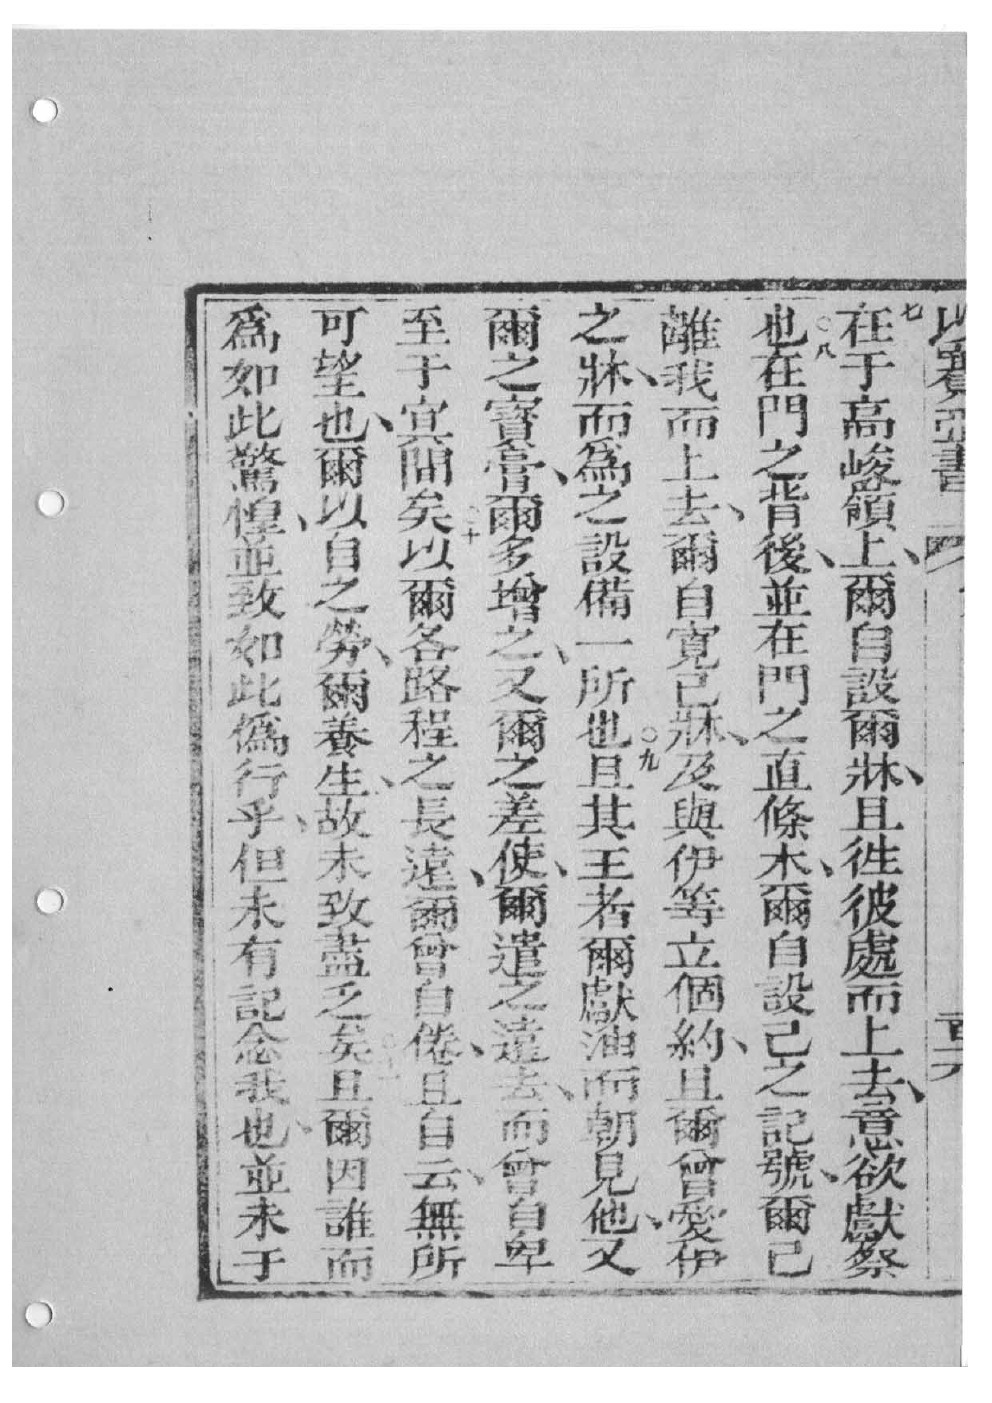 以賽亞書
七 在于高峻嶺上、爾自設爾牀、且徃彼處而上去、意欲獻祭
也○八在門之背後、並在門之直條木、爾自設己之記號、爾已
離我而上去、爾自寬已牀、及與伊等立個約、且爾曾愛伊
之牀、而為之設備一所也○九且其王者爾獻油而朝見他、又
爾之寳膏、爾多增之、又爾之差使、爾遣之遠去、而曾自卑
至于冥間矣○十以爾各路程之長遠、爾曾自倦、且自云、無所
可望也、爾以自之勞、爾養生、故未致盡乏矣○十一且爾因誰而
為如此驚惶、並致如此偽行乎、但未有記念我也、並未于